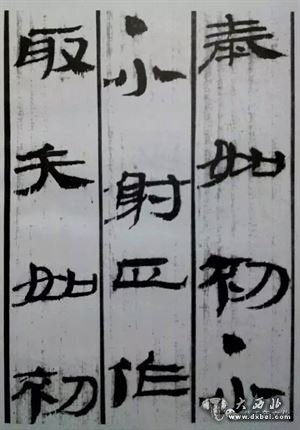 如初·小
·小射正作
取矢如初
大西北
www.dxbei.com